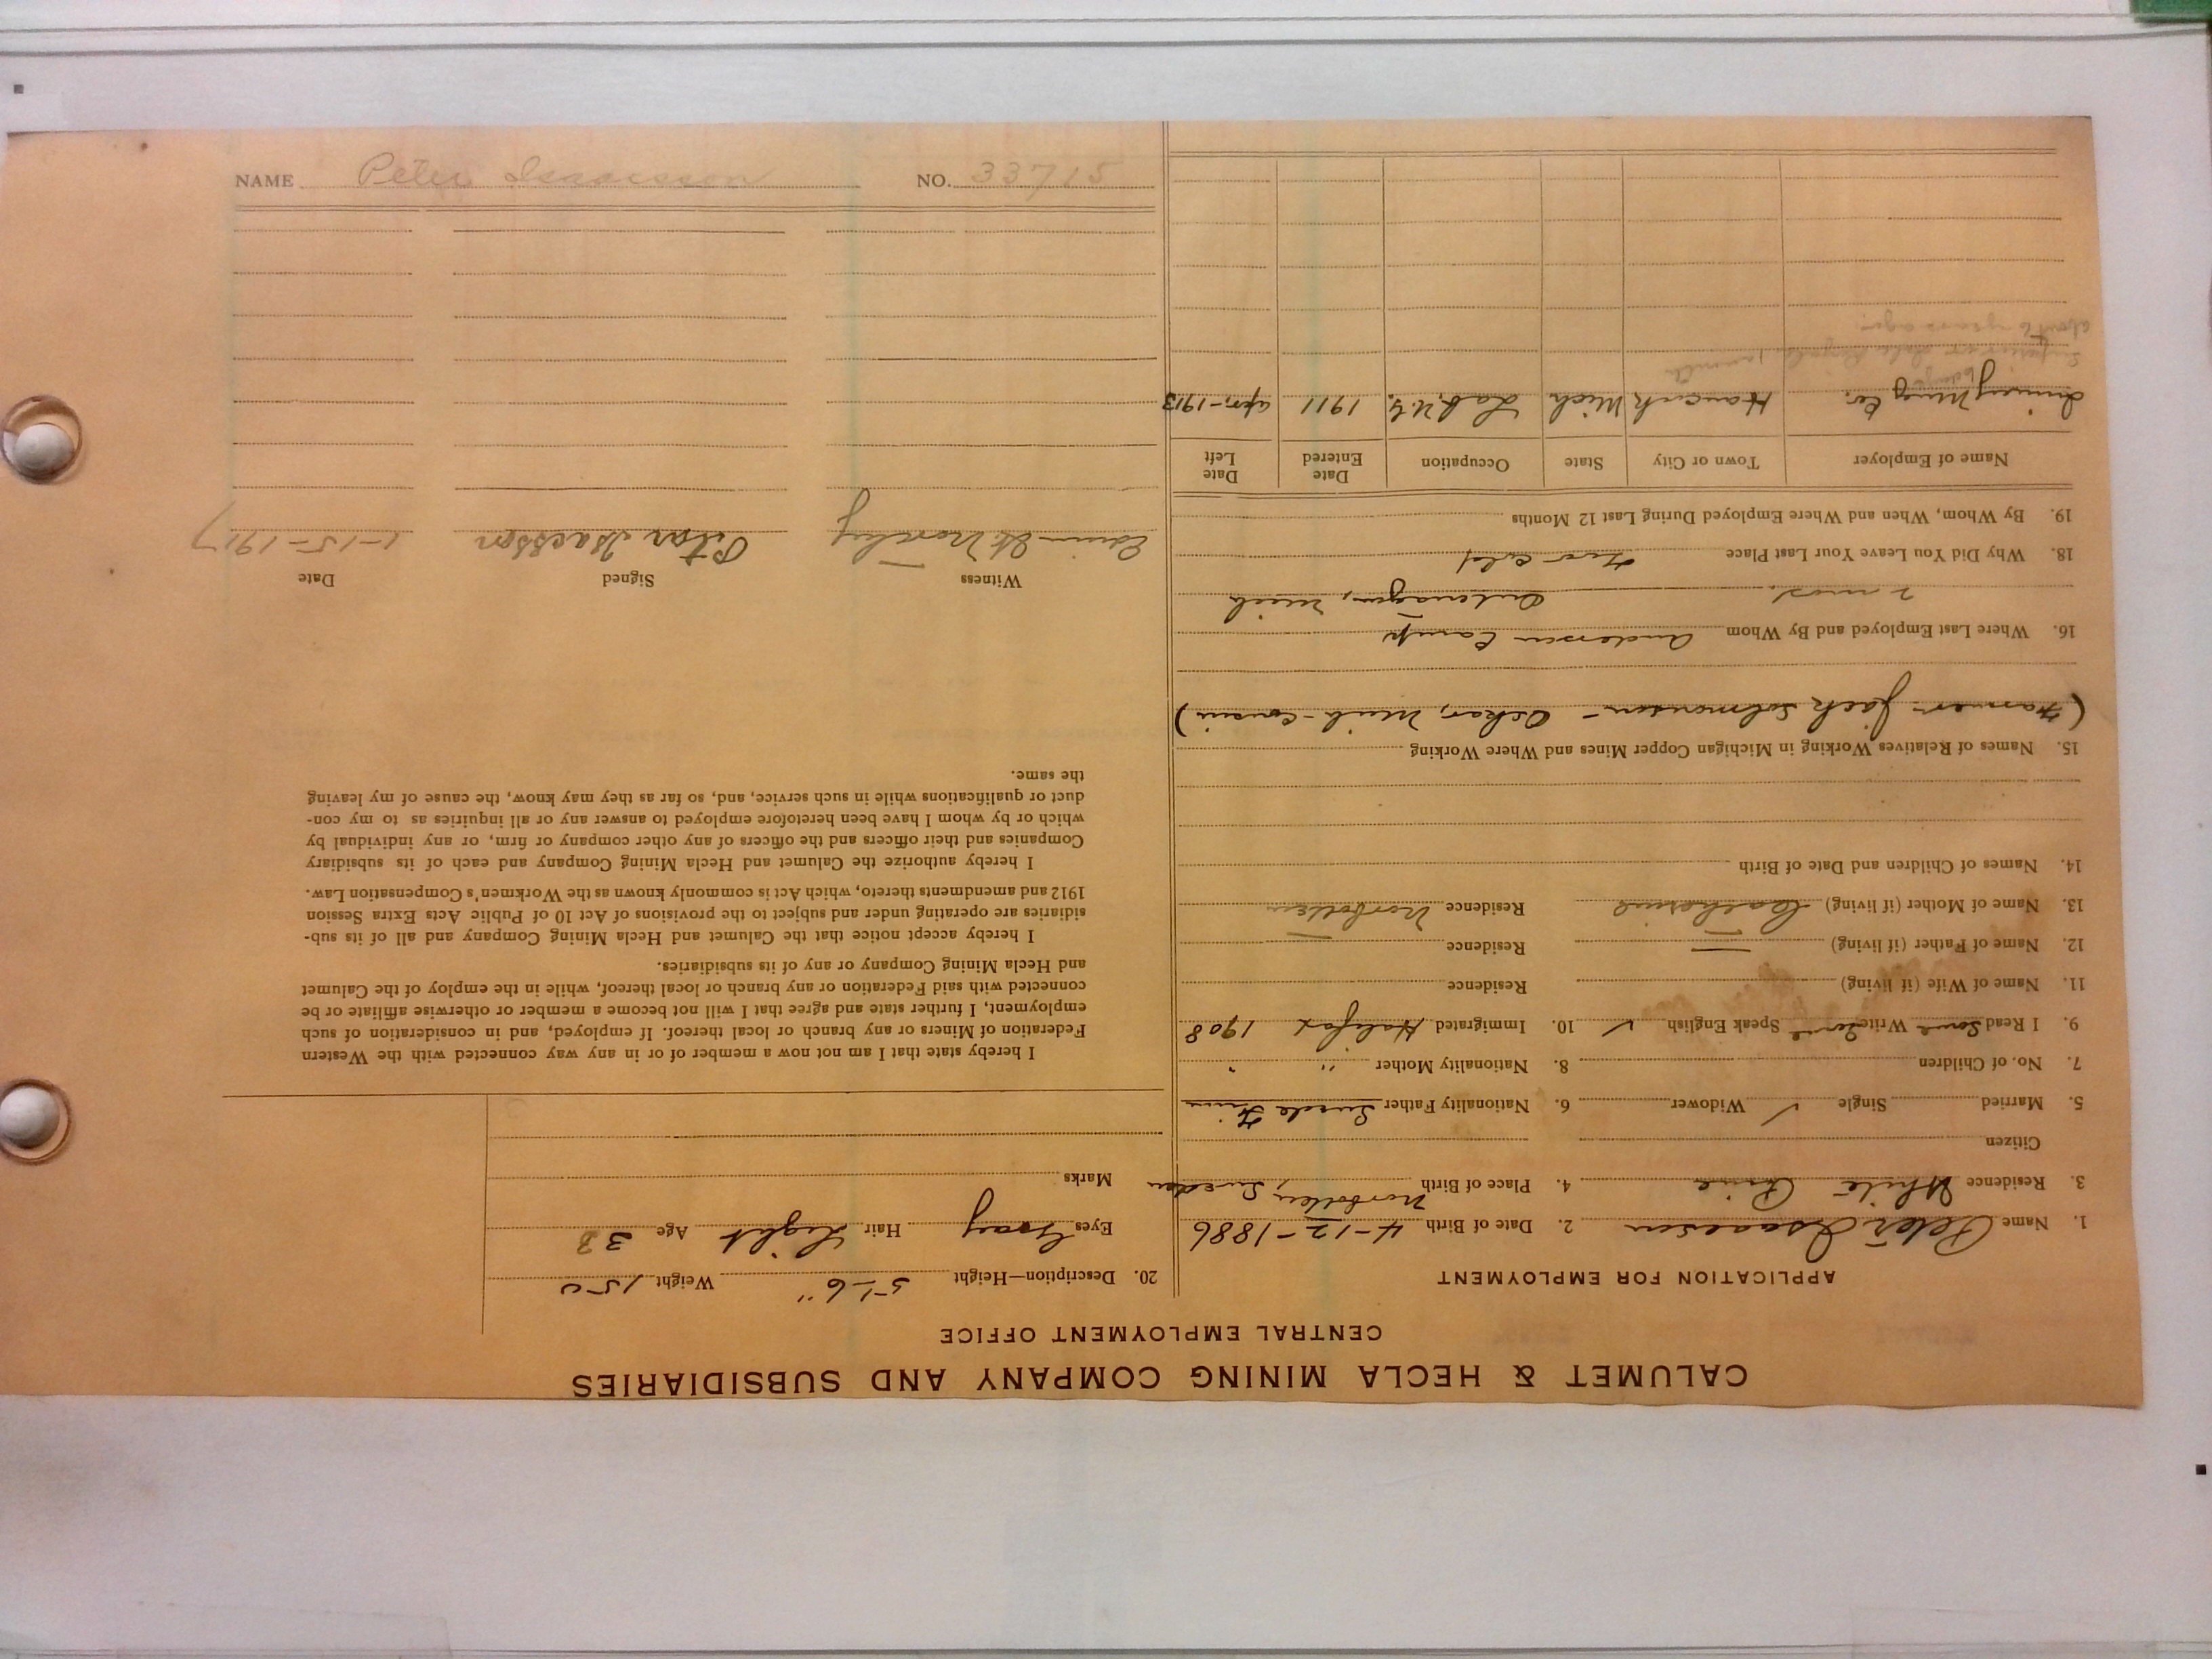 CALUMET & HECLA MINING COMPANY AND SUBSIDIARIES
CENTRAL EMPLOYMENT OFFICE
APPLICATION FOR EMPLOYMENT
1. Name Peter Isaacson 2. Date of Birth 4-12-1886
3. Residence White Pine 4. Place of Birth Norbotten, Sweden
Citizen
5. Married Single ✓ Widower 6. Nationality Father Swede Finn
7. No. of Children 8. Nationality Mother " "
9. I Read Some Write Some Speak English ✓ 10. Immigrated Halifax 1908
11. Name of Wife (if living) Residence
12. Name of Father (if living) — Residence
13. Name of Mother (if living) Catherine Residence Norbotten
14. Names of Children and Date of Birth
15. Names of Relatives Working in Michigan Copper Mines and Where Working
(Farmer - Jack Salmonson - Oskar, Mich - cousin)
16. Where Last Employed and By Whom Anderson Camp
2 mos. Ontonagon, Mich
18. Why Did You Leave Your Last Place Too cold
19. By Whom, When and Where Employed During Last 12 Months
Name of Employer Town or City State Occupation Date Entered Date Left
Quincy Mining Co. Hancock Mich Lab. U.G. 1911 Apr.-1913
about 6 years ago.
20. Description—Height 5'-6" Weight 150
Eyes Gray Hair Light Age 33
Marks
I hereby state that I am not now a member of or in any way connected with the Western
Federation of Miners or any branch or local thereof. If employed, and in consideration of such
employment, I further state and agree that I will not become a member or otherwise affiliate or be
connected with said Federation or any branch or local thereof, while in the employ of the Calumet
and Hecla Mining Company or any of its subsidiaries.
I hereby accept notice that the Calumet and Hecla Mining Company and all of its sub-
sidiaries are operating under and subject to the provisions of Act 10 of Public Acts Extra Session
1912 and amendments thereto, which Act is commonly known as the Workmen's Compensation Law.
I hereby authorize the Calumet and Hecla Mining Company and each of its subsidiary
Companies and their officers and the officers of any other company or firm, or any individual by
which or by whom I have been heretofore employed to answer any or all inquiries as to my con-
duct or qualifications while in such service, and, so far as they may know, the cause of my leaving
the same.
Witness Signed Date
Peter Isacsson 1-15-1917
NAME Peter Isaacsson NO. 33715